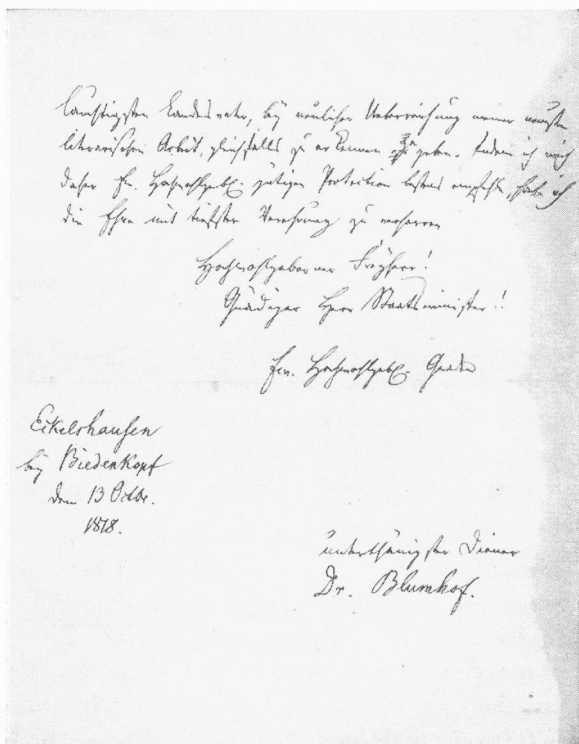 lauchtigsten Landesvater, bey neulicher Ueberreichung meiner neusten
literarischen Arbeit, gleichfalls zu erkennen zu geben. Indem ich mich
daher Ew. Hochwohlgeb. gütigen Protection bestens empfehle, habe ich
die Ehre mit tiefster Verehrung zu verharren
Hochwohlgeborner Freyherr!
Gnädiger Herr Staatsminister!
Ew. Hochwohlgeb. Gnaden
Eckelshausen
bey Biedenkopf
den 13 Octbr.
1818.
unterthänigster Diener
Dr. Blumhof.